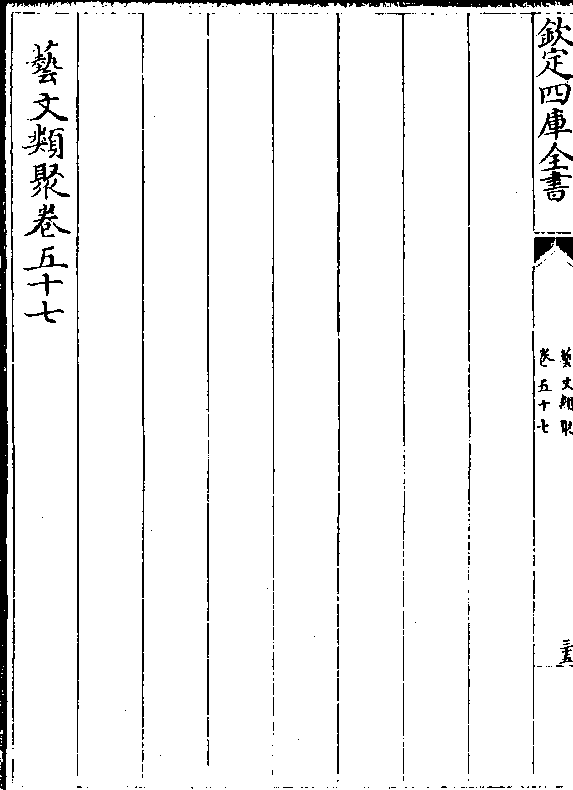 欽定四庫全書
藝文類聚
卷五十七
三五
藝文類聚卷五十七